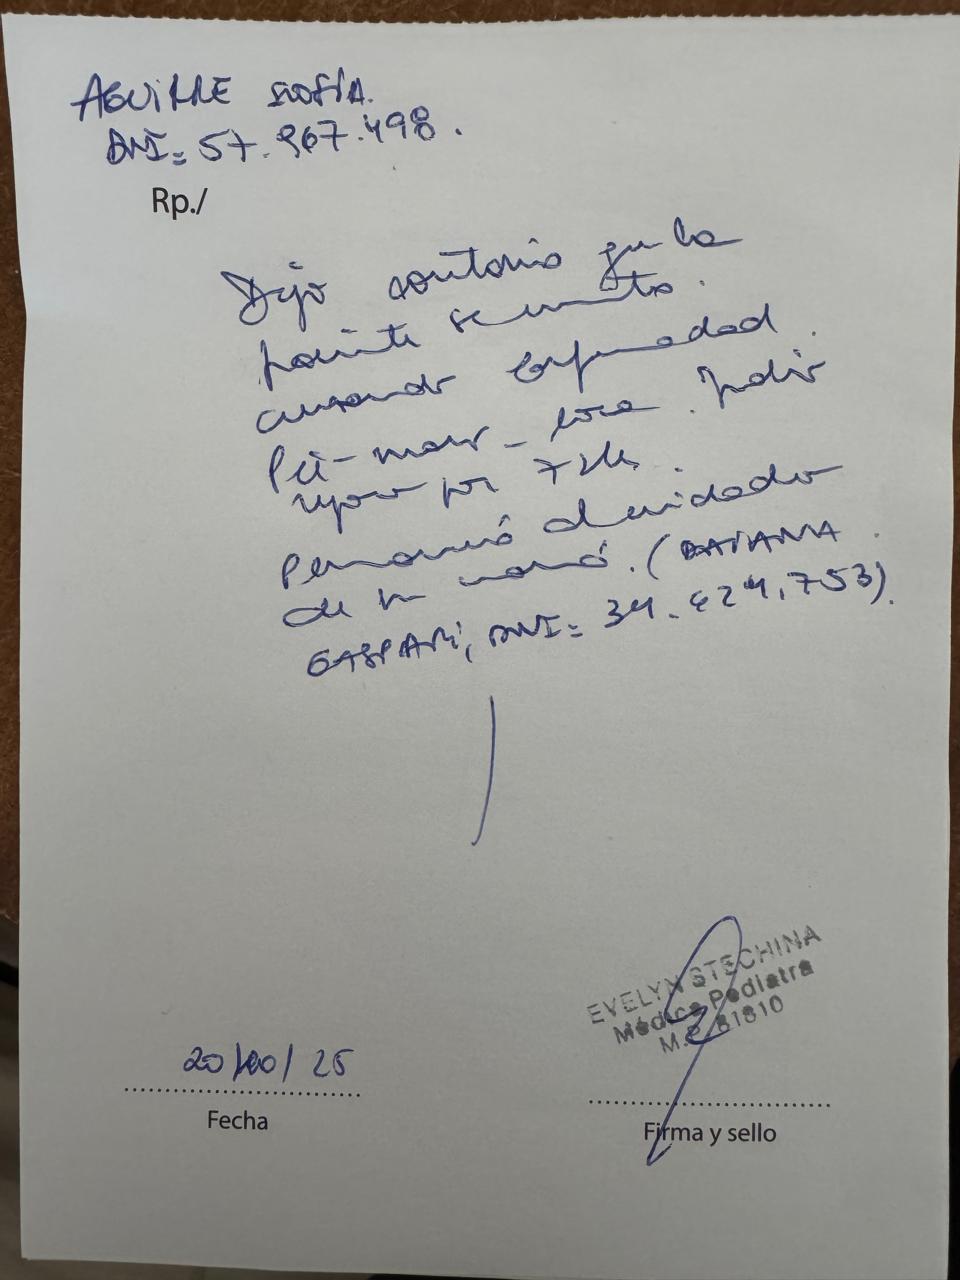 AGUIRRE SOFÍA.
DNI = 57.967.498.
Rp./
Dejo constancia que la
paciente se encuentra
cursando enfermedad
Pié-mano-boca. Indico
reposo por 72hs.
Permanecerá al cuidado
de su mamá. (DAIANA
GASPARI, DNI = 34.424.753).
EVELYN STECHINA
Médica Pediatra
M.P. 81810
20/10/25
Fecha
Firma y sello